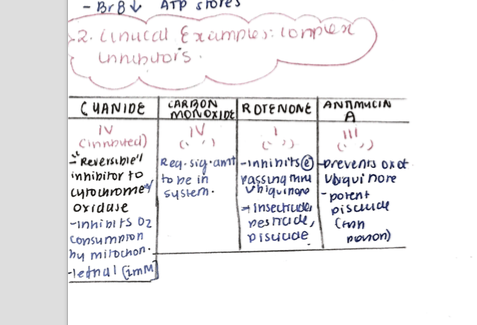 - BrB↓ ATP stores
2. Clinical Examples: Complex
Inhibitors.
CYANIDE
IV
(inhibited)
- "Reversible"
inhibitor to
cytochrome
oxidase
- Inhibits O2
consumption
by mitochon.
- lethal (1mM)
CARBON
MONOXIDE
IV
(" ")
Req. sig. amt
to be in
system.
ROTENONE
I
(" ")
- Inhibits e
passing thru
ubiquinone
→ Insecticide,
pesticide,
piscicide.
ANTIMYCIN
A
III
(" ")
- prevents ox of
ubiquinone
- potent
piscicide
poison)